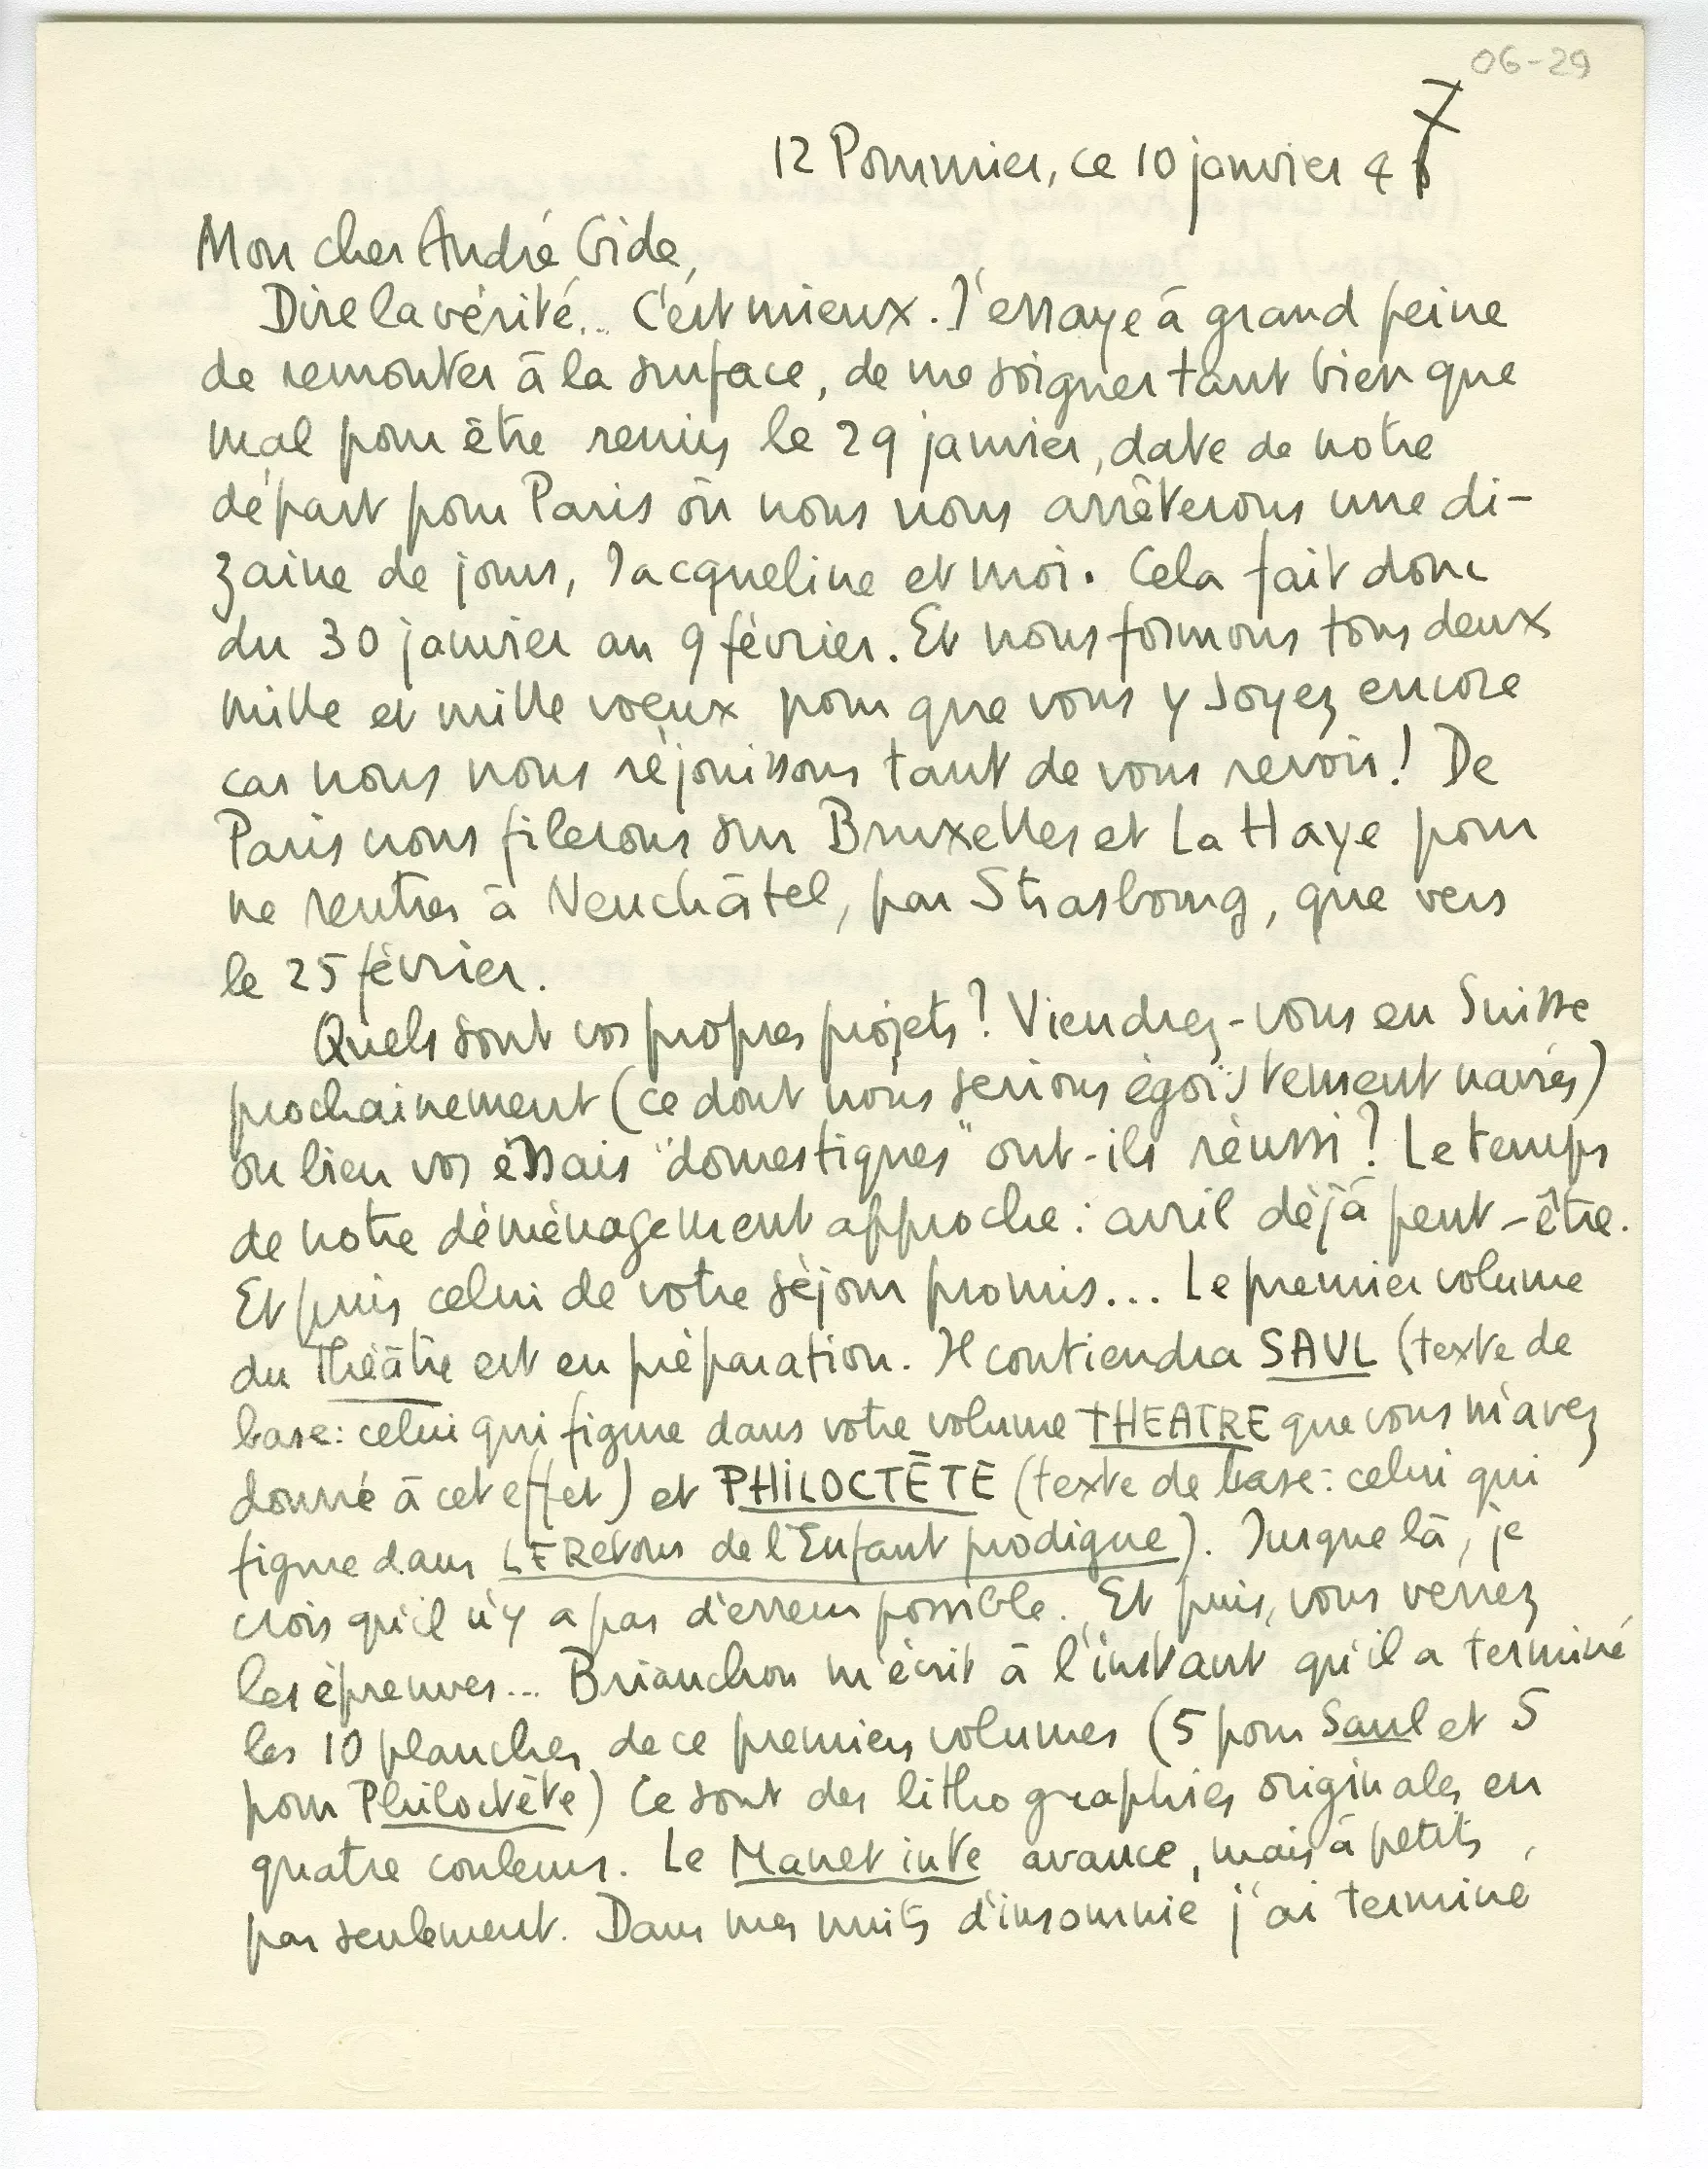 06-29
12 Pommier, ce 10 janvier 47
Mon cher André Gide,
Dire la vérité... C'est mieux. J'essaye à grand peine
de remonter à la surface, de me soigner tant bien que
mal pour être remis le 29 janvier, date de notre
départ pour Paris où nous nous arrêterons une di-
zaine de jours, Jacqueline et moi. Cela fait donc
du 30 janvier au 9 février. Et nous formons tous deux
mille et mille voeux pour que vous y soyez encore
car nous nous réjouissons tant de vous revoir! De
Paris nous filerons sur Bruxelles et La Haye pour
ne rentrer à Neuchâtel, par Strasbourg, que vers
le 25 février.
Quels sont vos propres projets? Viendrez-vous en Suisse
prochainement (ce dont nous serions égoïstement navrés)
ou bien vos essais "domestiques" ont-ils réussi? Le temps
de notre déménagement approche: avril déjà peut-être.
Et puis celui de votre séjour promis... Le premier volume
du Théâtre est en préparation. Il contiendra SAUL (texte de
base: celui qui figure dans votre volume THEATRE que vous m'avez
donné à cet effet) et PHILOCTÈTE (texte de base: celui qui
figure dans LE Retour de l'Enfant prodigue). Jusque là, je
crois qu'il n'y a pas d'erreur possible. Et puis, vous verrez
les épreuves... Brianchon m'écrit à l'instant qu'il a terminé
les 10 planches de ce premier volumes (5 pour Saul et 5
pour Philoctète) Ce sont des lithographies originales en
quatre couleurs. Le Manet inte avance, mais à petits
pas seulement. Dans mes nuits d'insomnie j'ai terminé